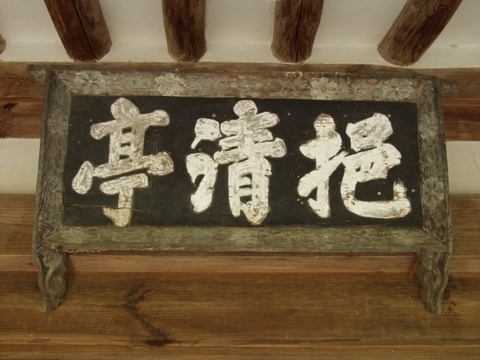 挹清亭